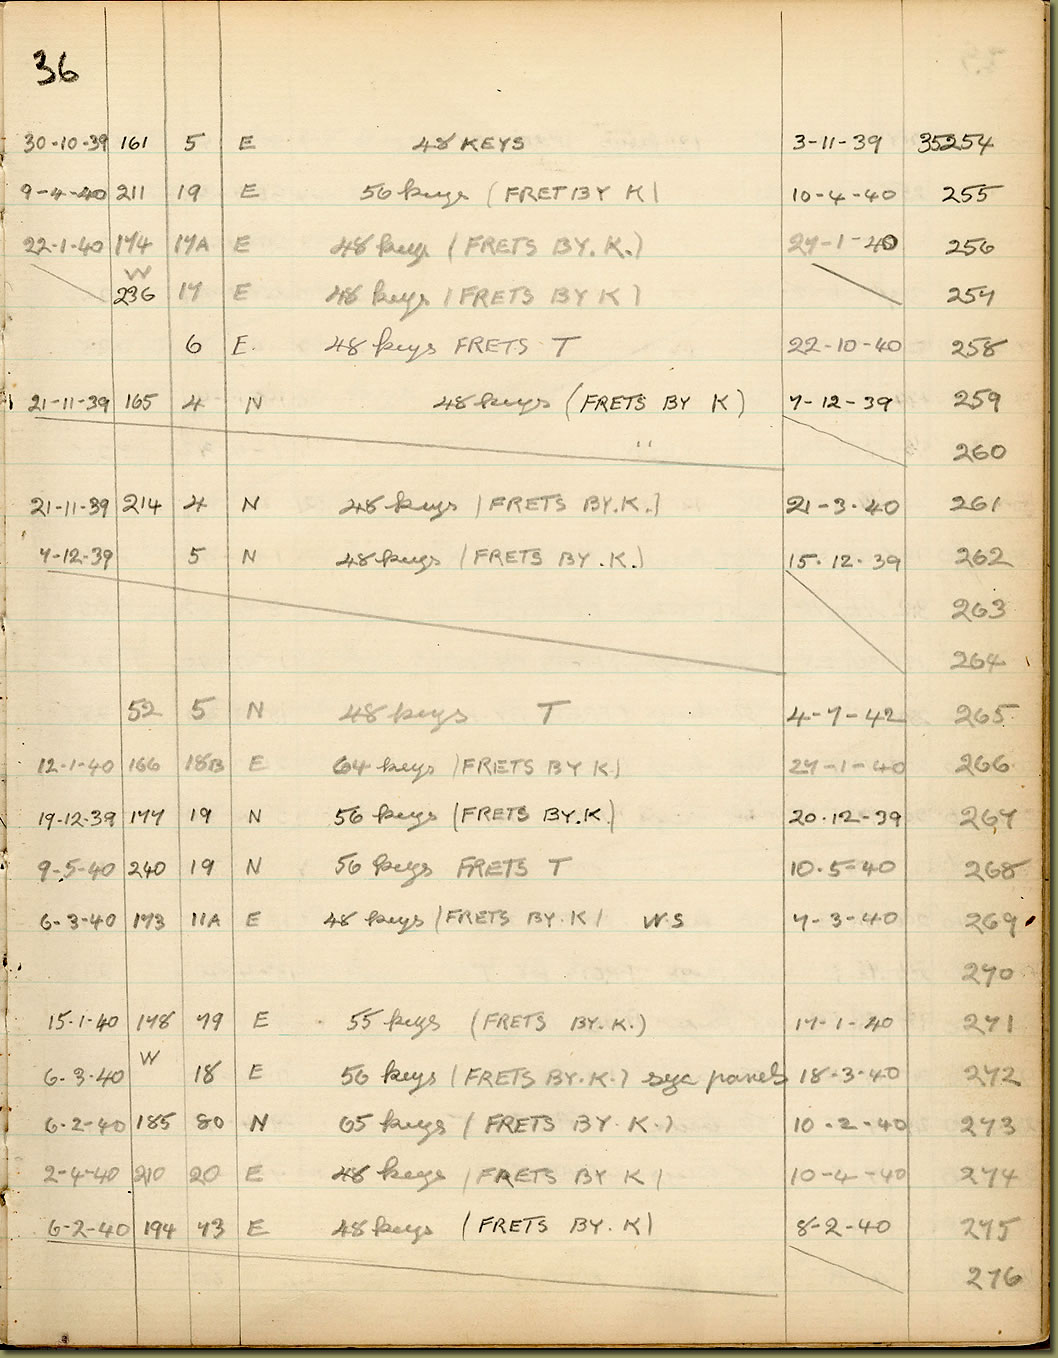 36
30-10-39 161 5 E 48 KEYS 3-11-39 35254
9-4-40 211 19 E 56 keys (FRET BY K) 10-4-40 255
22-1-40 174 17A E 48 keys (FRETS BY.K.) 27-1-40 256
W
236 17 E 48 keys (FRETS BY K) 257
6 E. 48 keys FRETS T 22-10-40 258
21-11-39 165 4 N 48 keys (FRETS BY K) 7-12-39 259
" 260
21-11-39 214 4 N 48 keys (FRETS BY.K.) 21-3-40 261
7-12-39 5 N 48 keys (FRETS BY.K.) 15.12.39 262
263
264
52 5 N 48 keys T 4-7-42 265
12-1-40 166 18B E 64 keys (FRETS BY K) 27-1-40 266
19-12-39 177 19 N 56 keys (FRETS BY.K) 20.12-39 267
9-5-40 240 19 N 56 keys FRETS T 10.5-40 268
6-3-40 173 11A E 48 keys (FRETS BY.K) W.S 7-3-40 269
270
15-1-40 178 79 E 55 keys (FRETS BY.K.) 17-1-40 271
W
6-3-40 18 E 56 keys (FRETS BY.K.) panels 18-3-40 272
6-2-40 185 80 N 65 keys (FRETS BY.K.) 10-2-40 273
2-4-40 210 20 E 48 keys (FRETS BY K) 10-4-40 274
6-2-40 194 73 E 48 keys (FRETS BY.K) 8-2-40 275
276